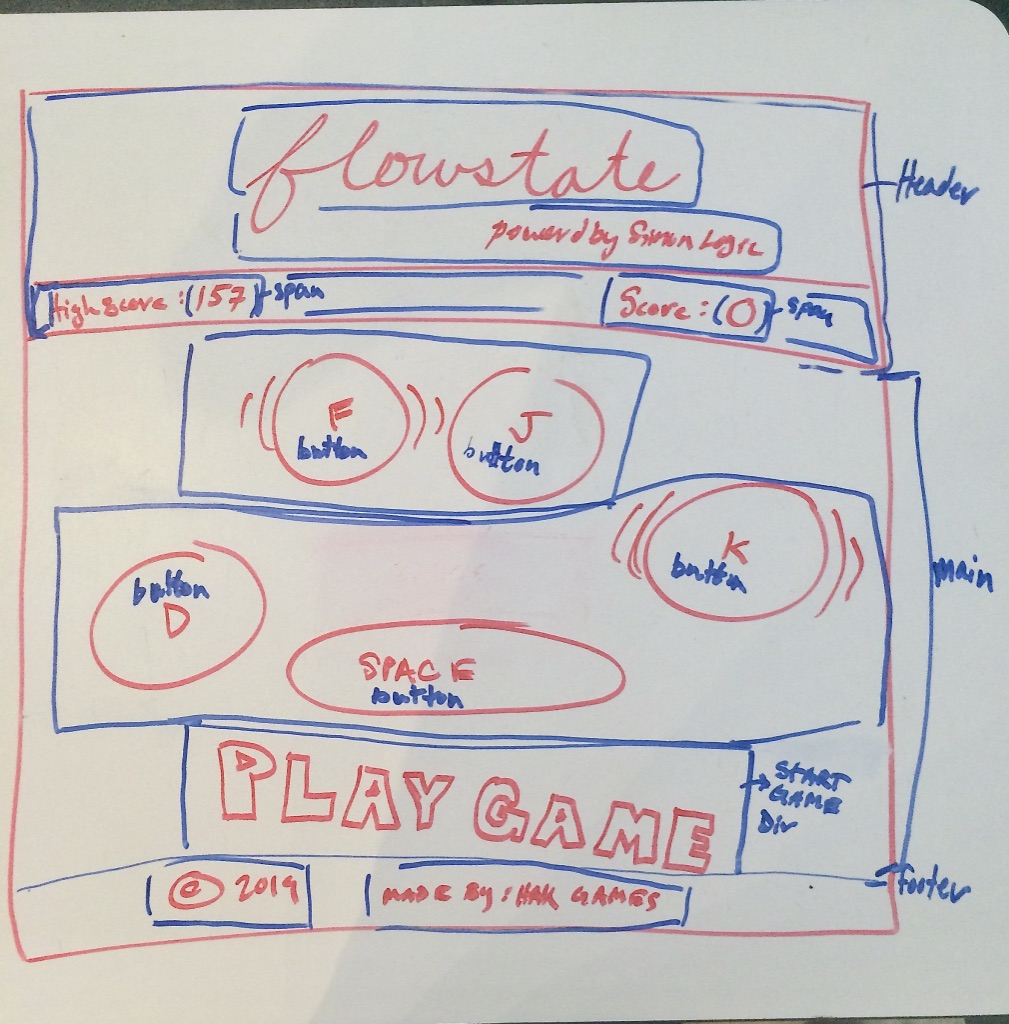 flowstate
powered by Simon Logic
Header
High score : (157) span
Score : (0) span
F
button
J
button
K
button
main
button
D
SPACE
button
PLAY GAME
START
GAME
Div
© 2019
MADE BY : HAK GAMES
footer